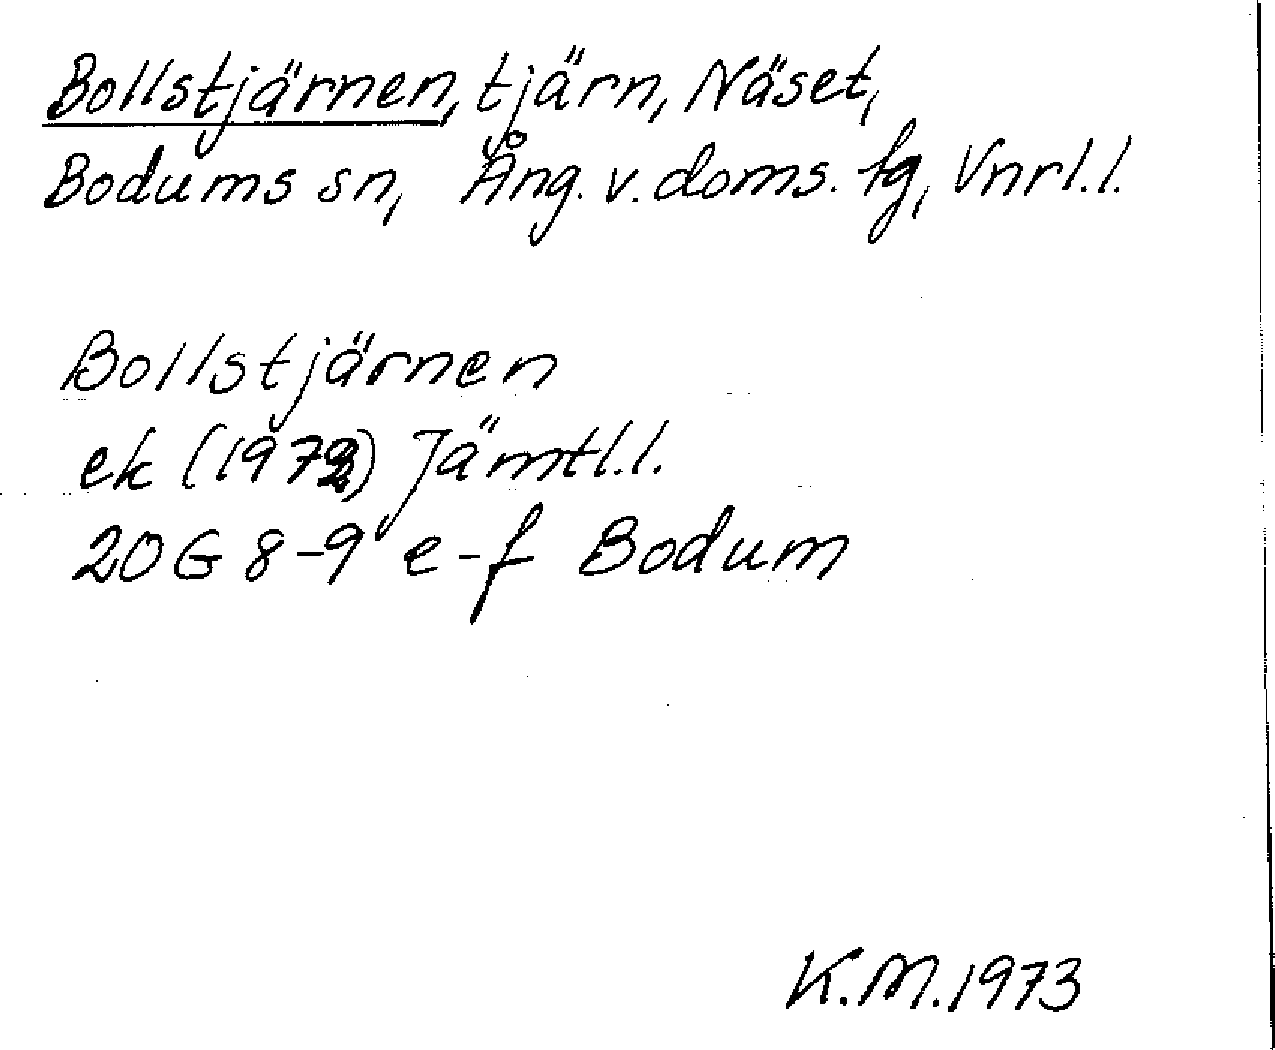 Bollstjärnen, tjärn, Näset,
Bodums sn, Ång. v. doms. tg, Vnrl.l.
Bollstjärnen
ek (1972) Jämtl.l.
20G 8-9 e-f Bodum
K.M.1973